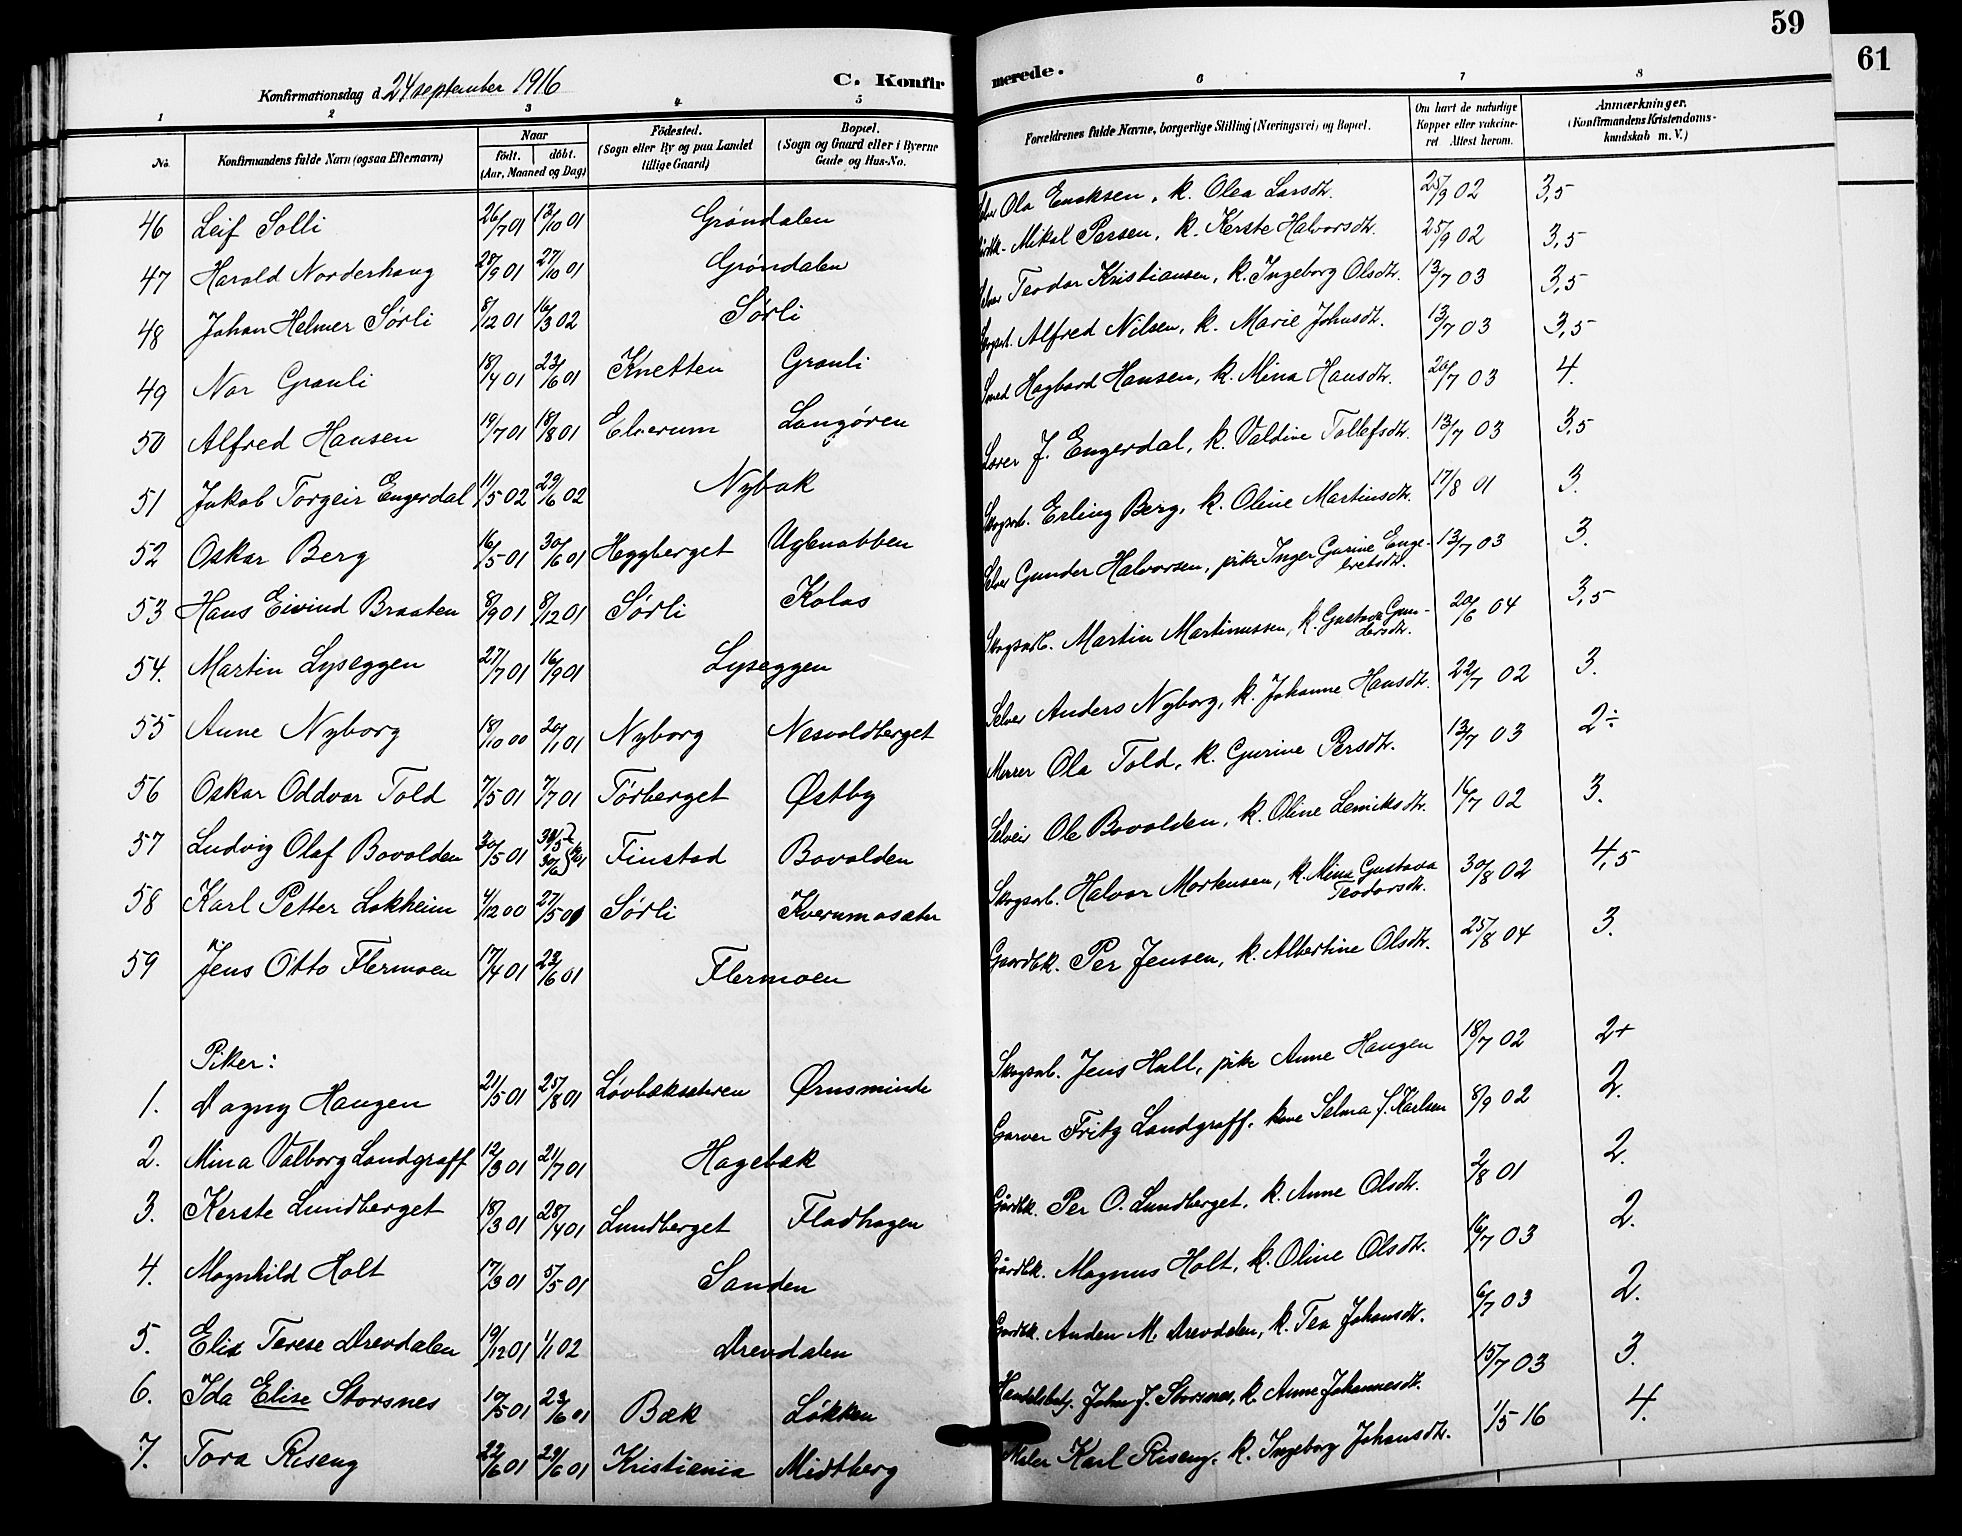 59
61
Konfirmationsdag d. 24 september 1916
C. Konfirmerede.
1 2 3 4 5 6 7 8
No. Konfirmandens fulde Navn (ogsaa Efternavn) Naar født. døbt. (Aar, Maaned og Dag) Fødested. (Sogn eller By og paa Landet tillige Gaard) Bopæl. (Sogn og Gaard eller i Byerne Gade og Hus-No. Forældrenes fulde Navne, borgerlige Stilling (Næringsvei) og Bopæl. Om havt de naturlige Kopper eller vakcineret Attest herom. Anmærkninger. (Konfirmandens Kristendomskundskab m. V.)
46 Leif Solli 26/7 01 13/10 01 Grøndalen Ola Enoksen, k. Olea Larsdtr. 25/9 02 3,5
47 Harald Norderhaug 28/9 01 27/10 01 Grøndalen Mikal Persen, k. Kerste Halvorsdtr. 25/9 02 3,5
48 Johan Helmer Sørli 8/12 01 16/3 02 Sørli Teodor Kristiansen, k. Ingeborg Olsdtr. 13/7 03 3,5
49 Nor Granli 18/4 01 23/6 01 Knetten Granli Skogsarb. Alfred Nilsen, k. Marie Johnsdtr. 13/7 03 3,5
50 Alfred Hansen 19/7 01 18/8 01 Elverum Langøren Smed Hagbard Hansen, k. Mina Hansdtr. 20/7 03 4.
51 Jakob Torgeir Engerdal 11/5 02 29/6 02 Nybak Lærer J. Engerdal, k. Valdine Tollefsdtr. 13/7 03 3,5
52 Oskar Berg 16/5 01 30/6 01 Heggberget Uglenabben Skogsarb. Erling Berg, k. Oline Martinsdtr. 17/8 01 3.
53 Hans Eivind Braaten 8/9 01 8/12 01 Sørli Kolos Selvei Gunder Halvorsen, pike Inger Gurine Engebretsdtr. 13/7 03 3.
54. Martin Lyseggen 27/7 01 16/9 01 Lyseggen Skogsarb. Martin Martinussen, k. Gustava Gundersdtr. 20/6 04 3,5
55 Anne Nyborg 18/10 00 20/1 01 Nyborg Nesvoldberget Selvei Anders Nyborg, k. Johanne Hansdtr. 22/7 02 3.
56 Oskar Oddvar Told 7/5 01 7/7 01 Tørberget Østby Murer Ola Told, k. Gurine Persdtr. 13/7 03 2÷
57 Ludvig Olaf Bovolden 30/5 01 30/6 01 Finstad Bovolden Selveir Ole Bovolden, k. Oline Lemiksdtr. 16/7 02 3.
58 Karl Petter Lokheim 4/12 00 27/5 01 Sørli Kvernmosæter Skogsarb. Halvor Mortensen, k. Mina Gustava Teodorsdtr. 30/8 02 4,5
59 Jens Otto Flermoen 17/4 01 23/6 01 Flermoen Gaardbk. Per Jensen, k. Albertine Olsdtr. 25/8 04 3.
Piker:
1. Dagny Haugen 21/5 01 25/8 01 Løvbæksætren Ørnsminde Skogsarb. Jens Hall, pike Anne Haugen 18/7 02 2+
2. Mina Valborg Landgraff 12/3 01 21/7 01 Hagebæk Garver Fritz Landgraff, kone Selma J. Karlsen 8/9 02 2.
3. Kerste Lundberget 18/3 01 28/4 01 Lundberget Fladhagen Gårdbk. Per O. Lundberget, k. Anne Olsdtr. 2/8 01 2.
4. Magnhild Holt 17/3 01 5/5 01 Sanden Gårdbk. Magnus Holt, k. Oline Olsdtr. 16/7 03 2.
5. Elia Terese Drevdalen 19/12 01 1/1 02 Drevdalen Gårdbk. Anden M. Drevdalen, k. Tea Johansdtr. 6/7 03 2.
6. Ida Elise Storsnes 10/5 01 23/6 01 Bæk Løkken Handelsbetj. John J. Storsnes, k. Anne Johannesdtr. 15/7 03 3.
7. Tora Riseng 22/6 01 29/6 01 Kristiania Midtberg Maler Karl Riseng, k. Ingeborg Johansdtr. 1/5 16 4.